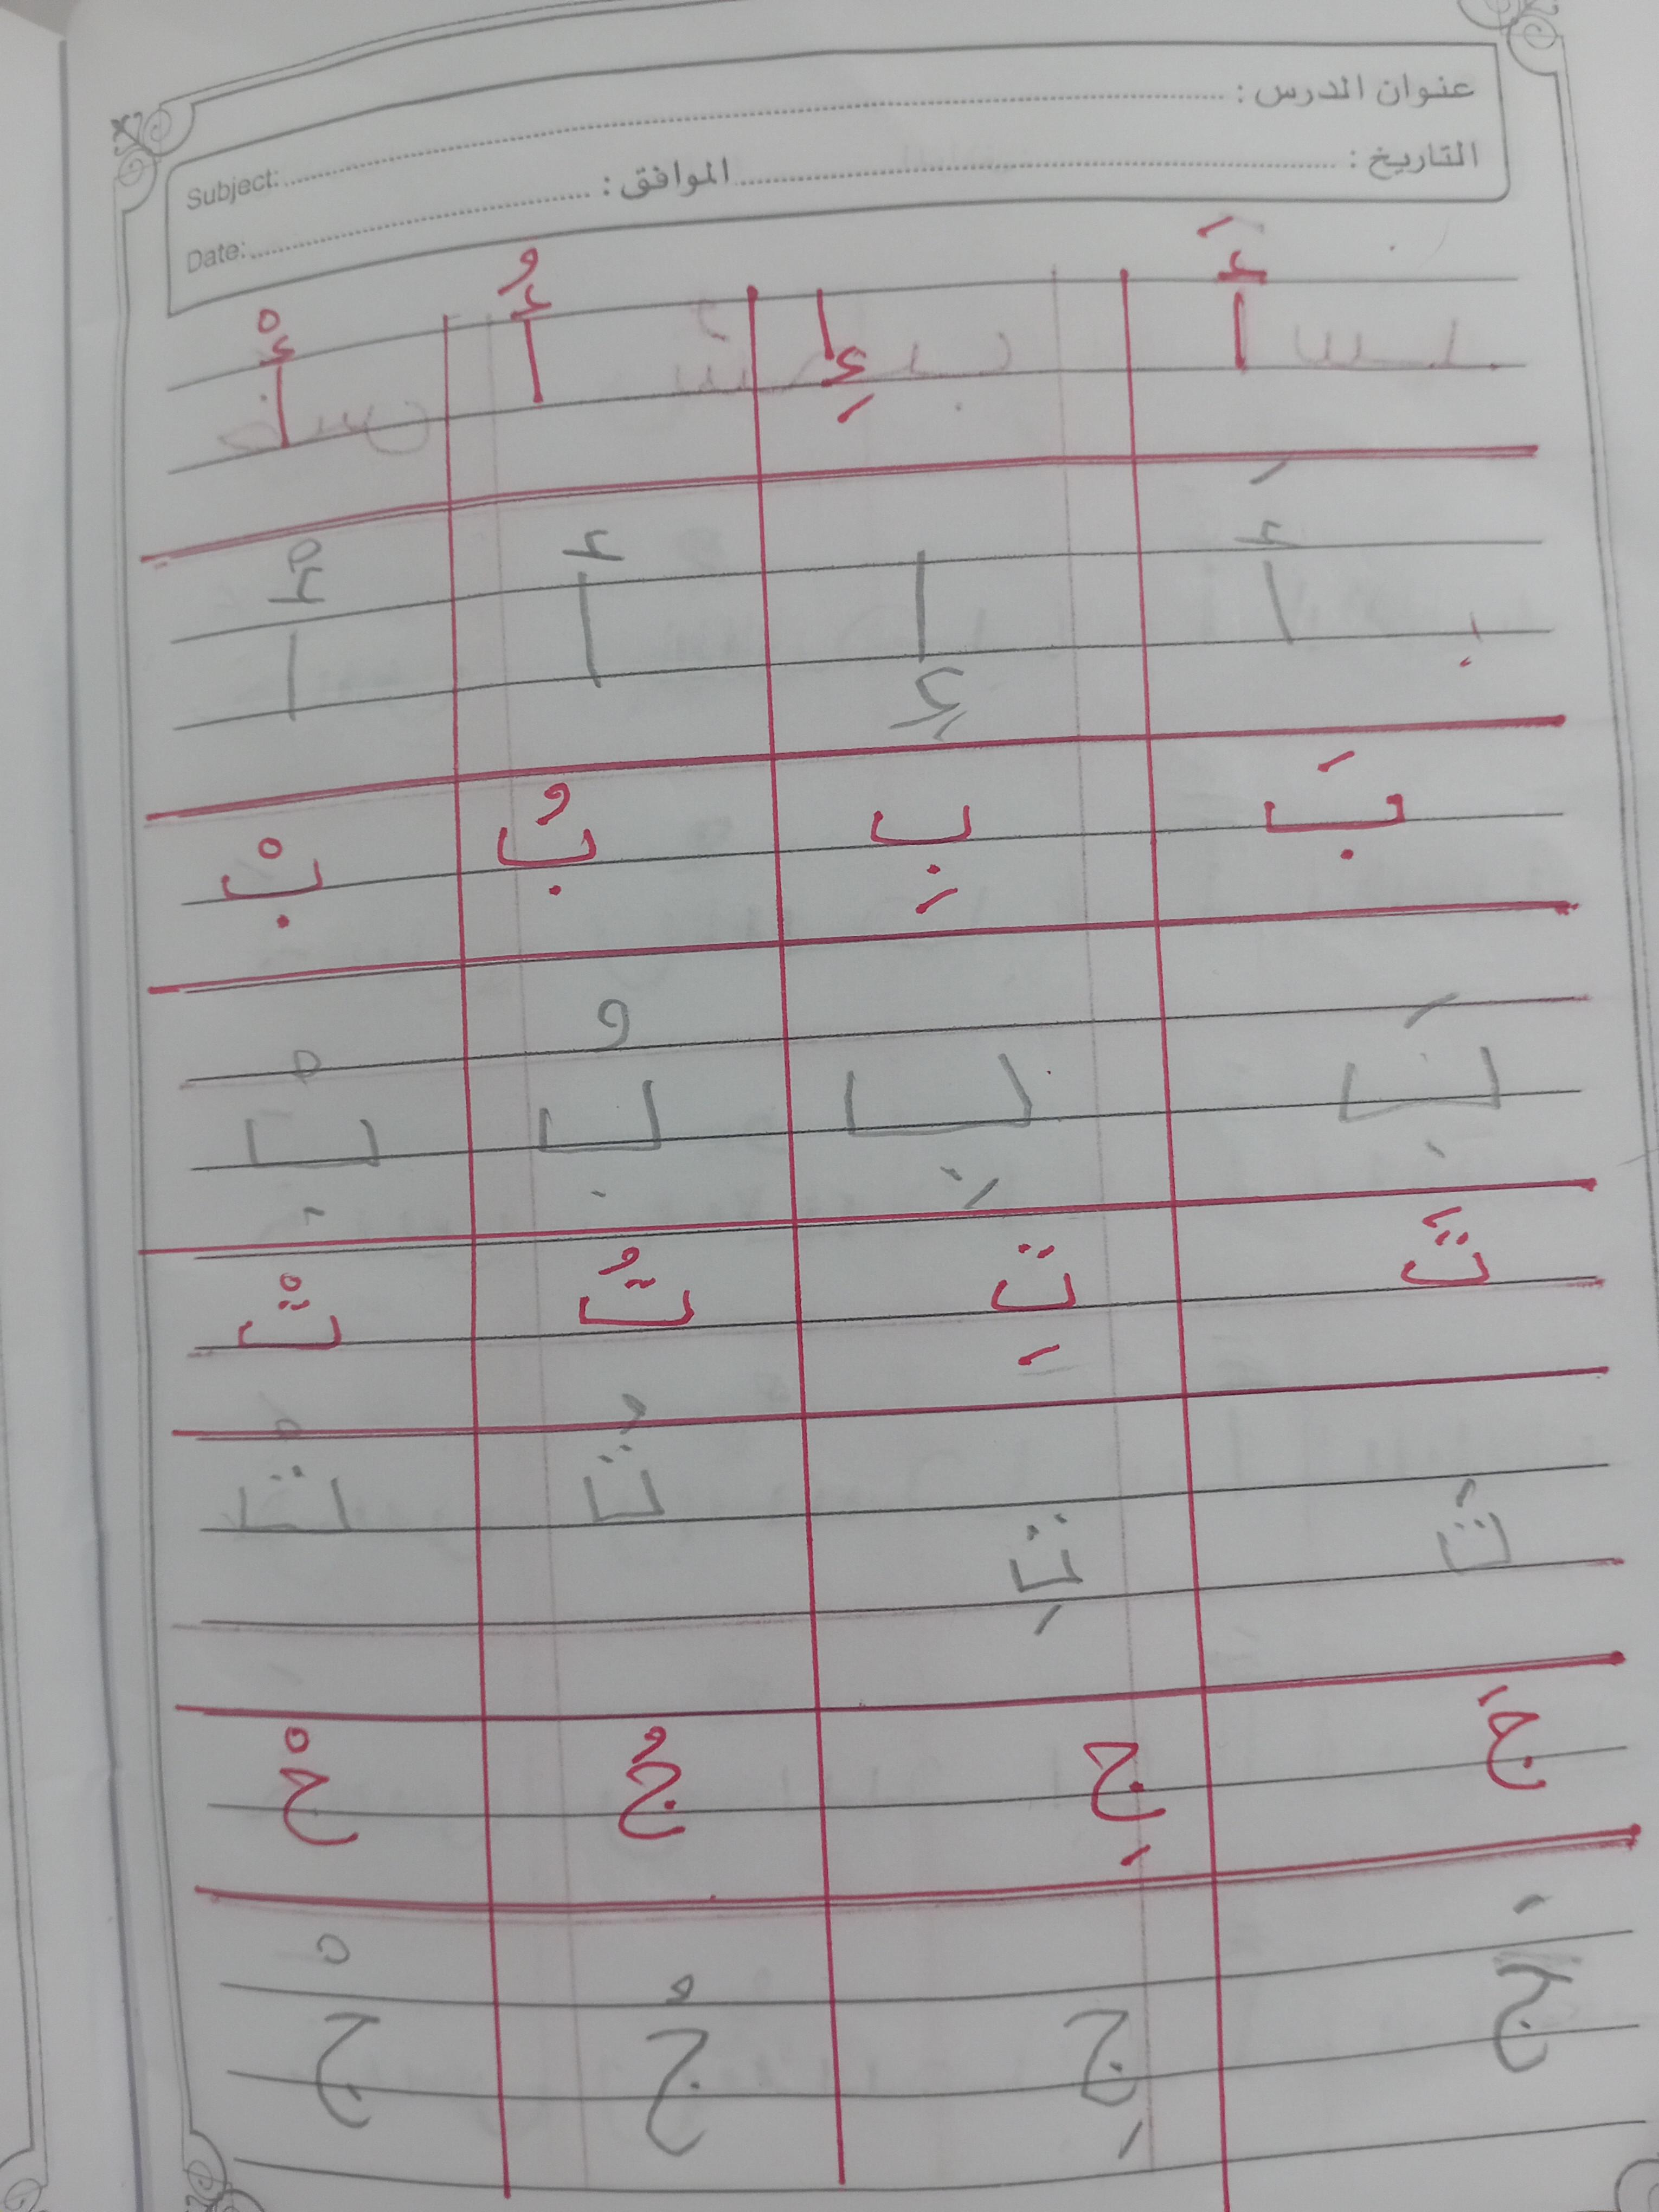 عنوان الدرس :
Subject:
التاريخ : الموافق :
Date:
أَ إِ أُ أْ
أَ إِ أ أْ
بَ بِ بُ بْ
بَ بِ بُ بْ
تَ تِ تُ تْ
تَ تِ تُ تْ
جَ جِ جُ حْ
جَ جِ جُ جْ